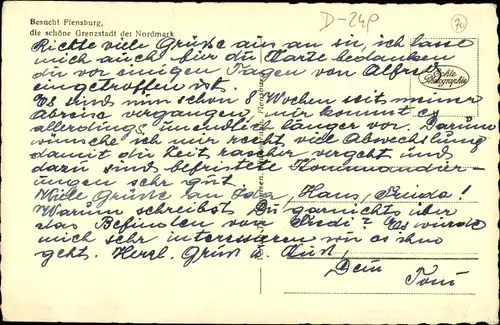 Besucht Flensburg,
die schöne Grenzstadt der Nordmark
D-24P
Echte
Photographie
Richte viele Grüsse aus an sie, ich lasse
mich auch für die Karte bedanken
die vor einigen Tagen von Alfred
eingetroffen ist.
Es sind nun schon 8 Wochen seit meiner
Abreise vergangen, mir kommt es
allerdings unendlich länger vor. Darum
wünsche ich mir recht viel Abwechslung
damit die Zeit rascher vergeht und
dazu sind befristete Kommandier-
ungen sehr gut.
Viele Grüsse an Hans, Frieda!
Warum schreibst Du garnichts über
das Befinden von Es würde
mich sehr interessieren wie es ihm
geht. Herzl. Gruss u. Kuss,
Dein
Toni